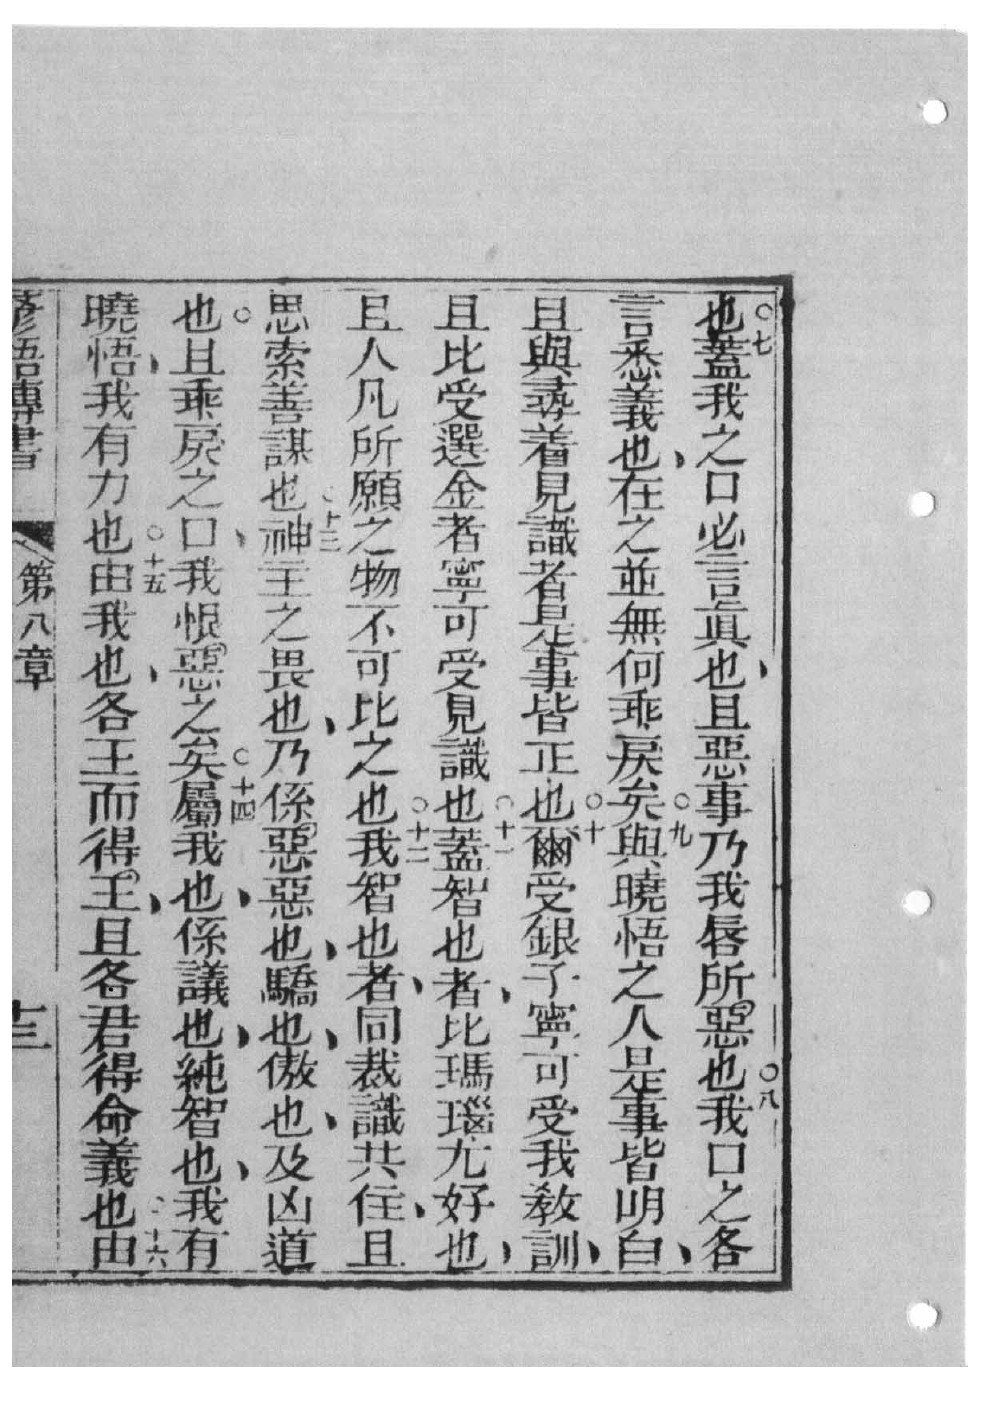 ○七也蓋我之口必言眞也、且惡事乃我唇所惡也○八我口之各
言悉義也、在之並無何乖戾矣○九與曉悟之人是事皆明白、
且與尋着見識者是事皆正也○十爾受銀子寧可受我敎訓、
且比受選金者寧可受見識也○十一蓋智也者、比瑪瑙尤好也、
且人凡所願之物不可比之也○十二我智也者、同裁識共住、且
思索善謀也○十三神主之畏也、乃係惡惡也、驕也、傲也、及凶道
也○且乖戾之口、我恨惡之矣○十四屬我也、係議也、純智也、我有
曉悟、我有力也○十五由我也、各王而得王、且各君得命義也○十六由
箴語傳書 第八章 十三